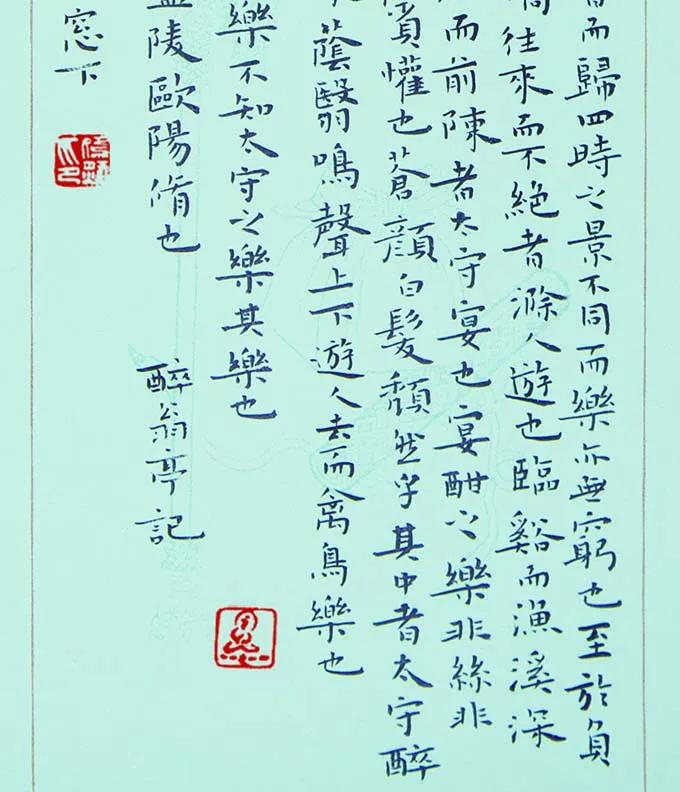 而歸四時之景不同而樂亦無窮也至於負
往來而不絕者滁人遊也臨谿而漁溪深
而前陳者太守宴也宴酣之樂非絲非
懽也蒼顏白髮頹然乎其中者太守醉
蔭翳鳴聲上下遊人去而禽鳥樂也
樂不知太守之樂其樂也
陵歐陽脩也
醉翁亭記
窓下